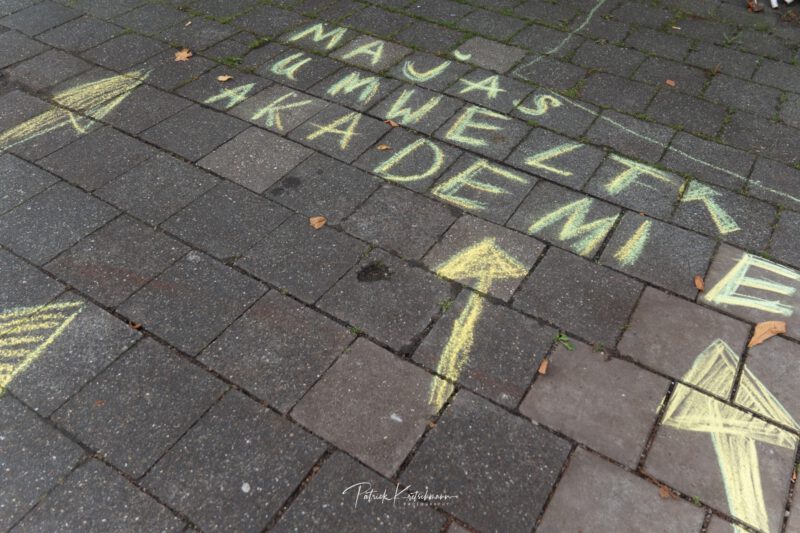 MAJAS
UMWELT
AKADEMIE
Patrick Kretschmann
PHOTOGRAPHY